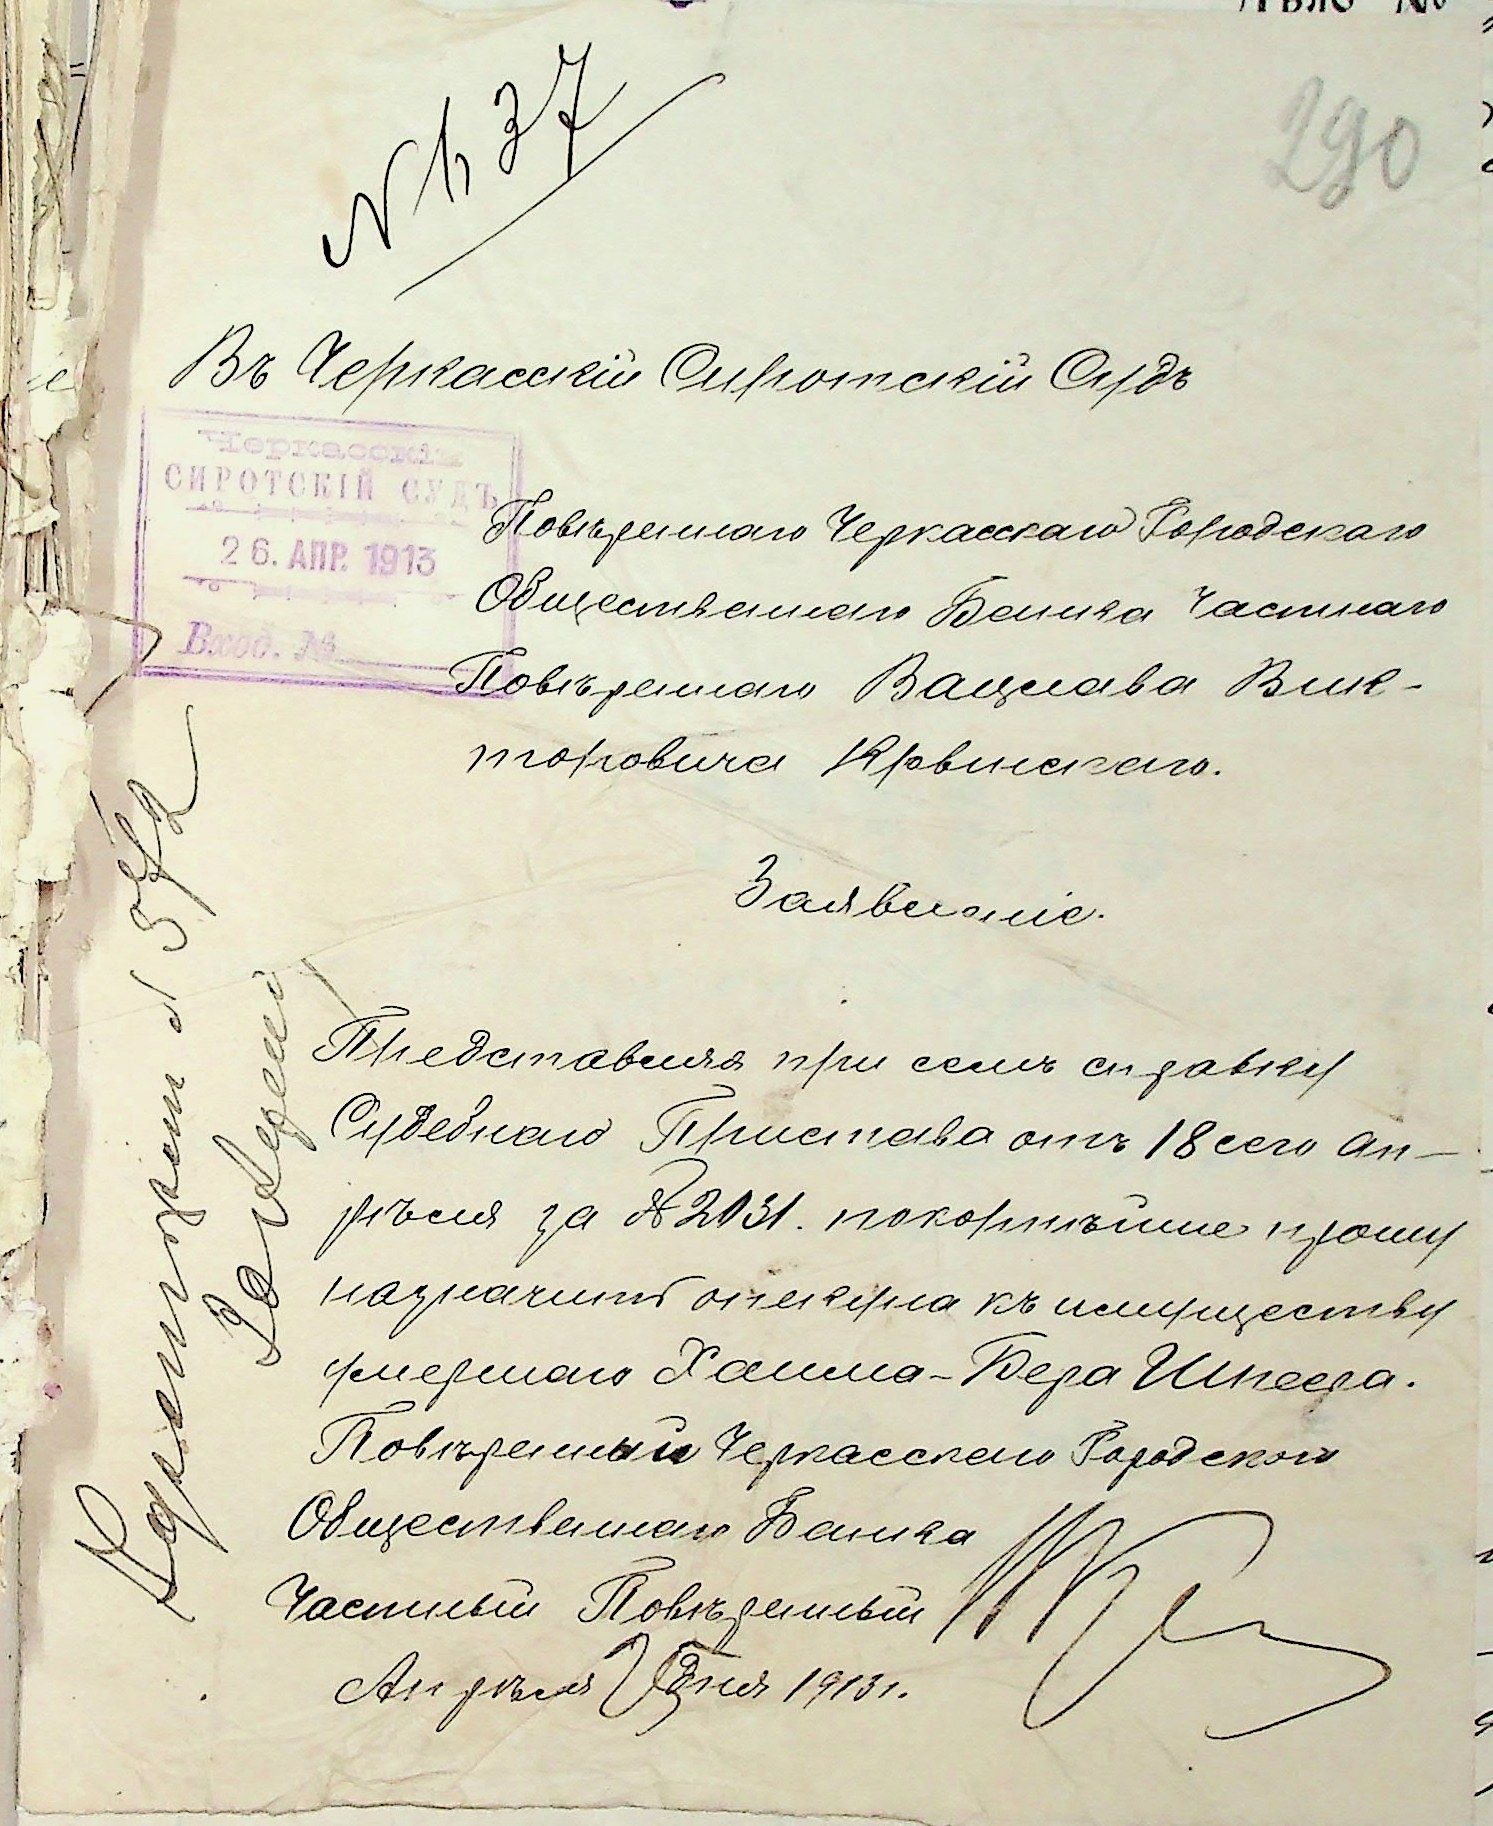 № 37
290
Въ Черкасскій Сиротскій Судъ
Черкасскій
СИРОТСКІЙ СУДЪ
26. АПР. 1913
Вход. №
Повѣреннаго Черкасскаго Городскаго
Общественнаго Банка Частнаго
Повѣреннаго Вацлава Вик-
торовича Крвинскаго.
Заявленіе.
Представляя при семъ справку
Судебнаго Пристава отъ 18 сего ап-
рѣля за № 2031. покорнѣйше прошу
назначить опекуна къ имуществу
умершаго Хаима-Бера Шпеера.
Повѣренный Черкасскаго Городского
Общественнаго Банка
Частный Повѣренный
Апрѣля дня 1913 г.